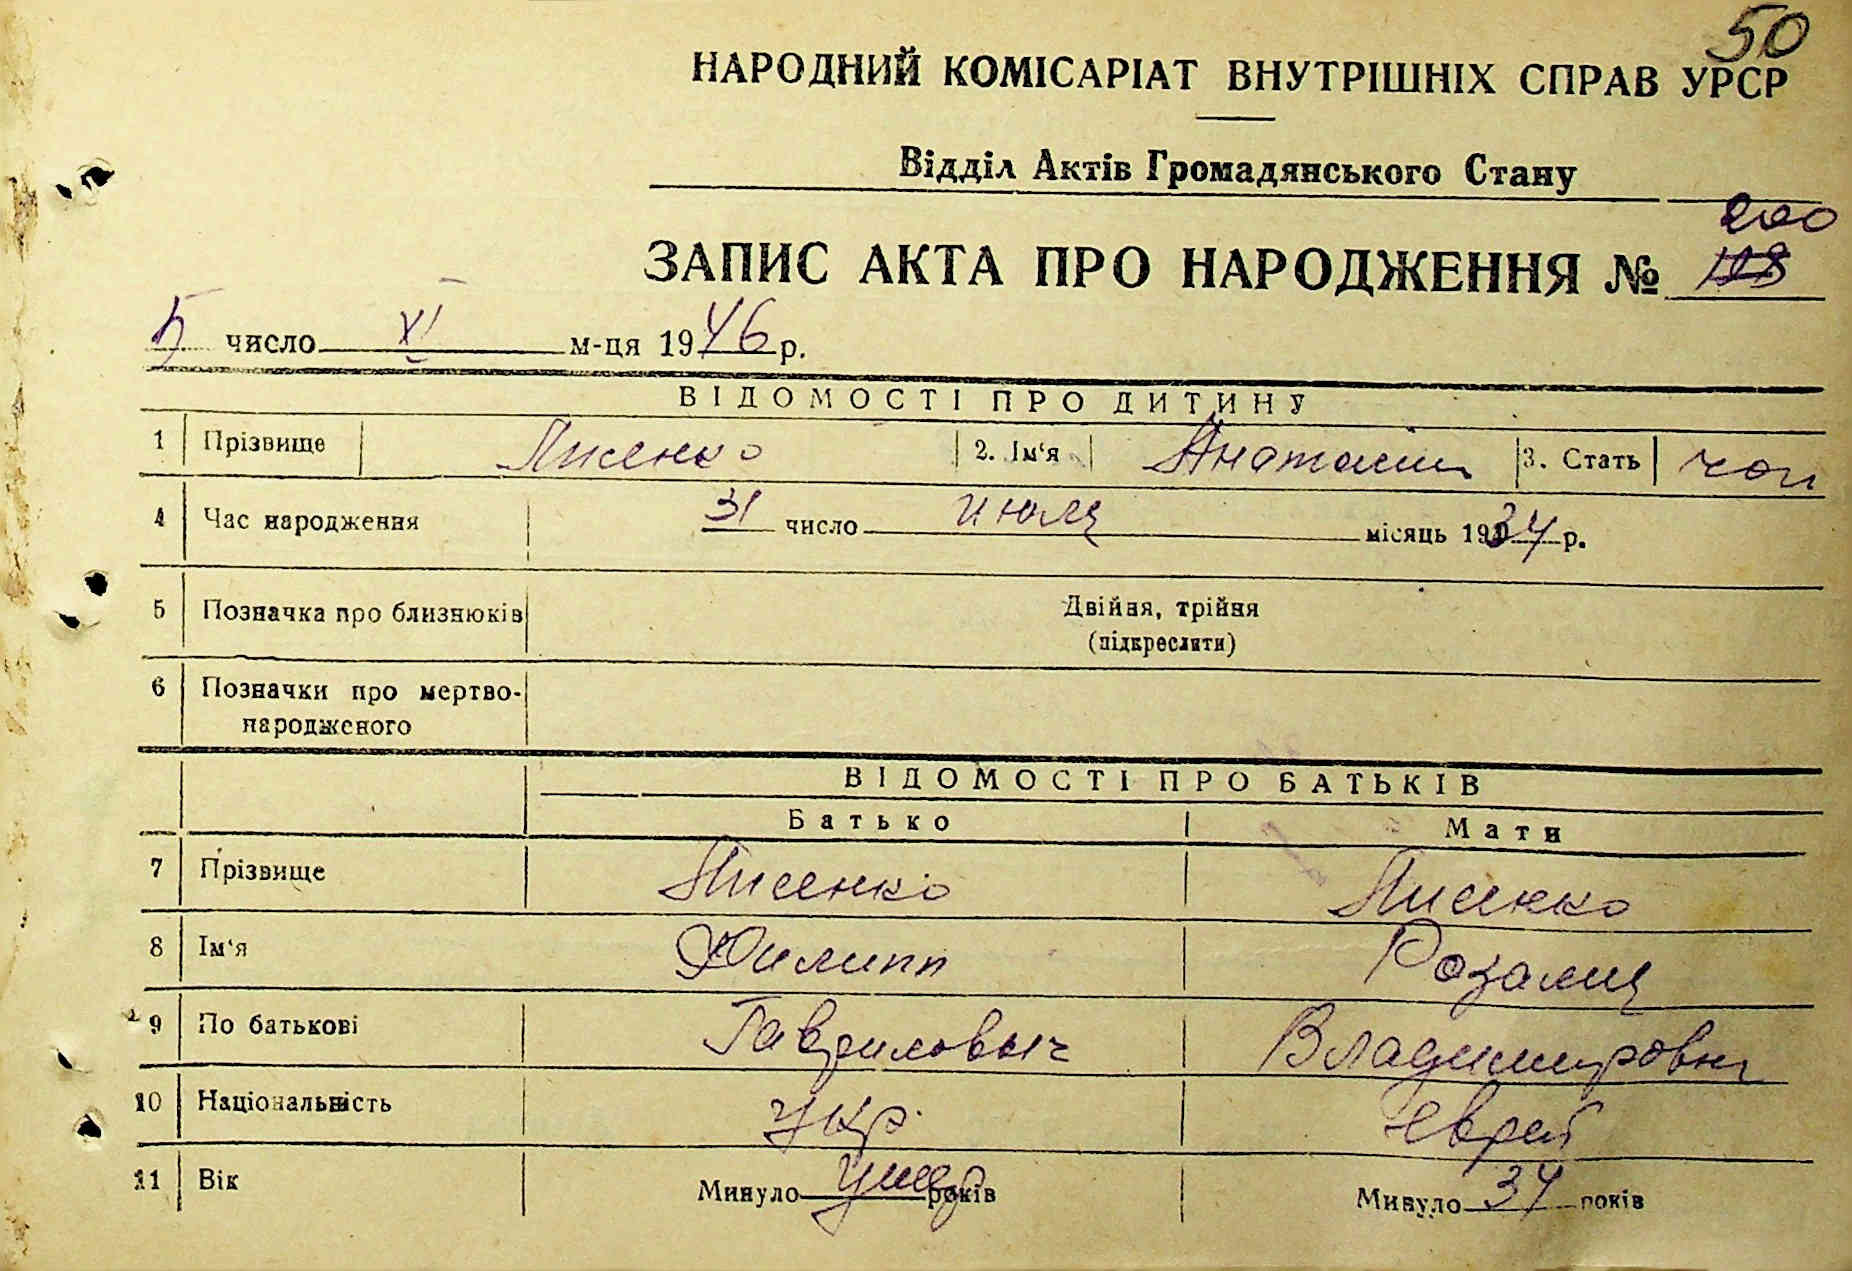 50
НАРОДНИЙ КОМІСАРІАТ ВНУТРІШНІХ СПРАВ УРСР
Відділ Актів Громадянського Стану
200
ЗАПИС АКТА ПРО НАРОДЖЕННЯ №
5 число XI м-ця 1946 р.
ВІДОМОСТІ ПРО ДИТИНУ
1 Прізвище Лисенко 2. Ім‘я Анатолий 3. Стать чол
4 Час народження 31 число июля місяць 1934 р.
5 Позначка про близнюків Двійня, трійня
(підкреслити)
6 Позначки про мертво-
народженого
ВІДОМОСТІ ПРО БАТЬКІВ
Батько Мати
7 Прізвище Лисенко Лисенко
8 Ім‘я Филипп Розалия
9 По батькові Гаврилович Владимировна
10 Національність укр. еврей
11 Вік Минуло умер років Минуло 34 років